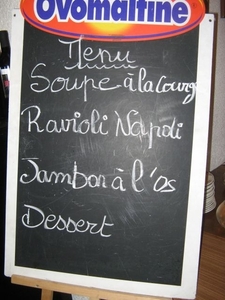 Ovomaltine
Menu
Soupe à la Courg
Ravioli Napoli
Jambon à l'os
Dessert